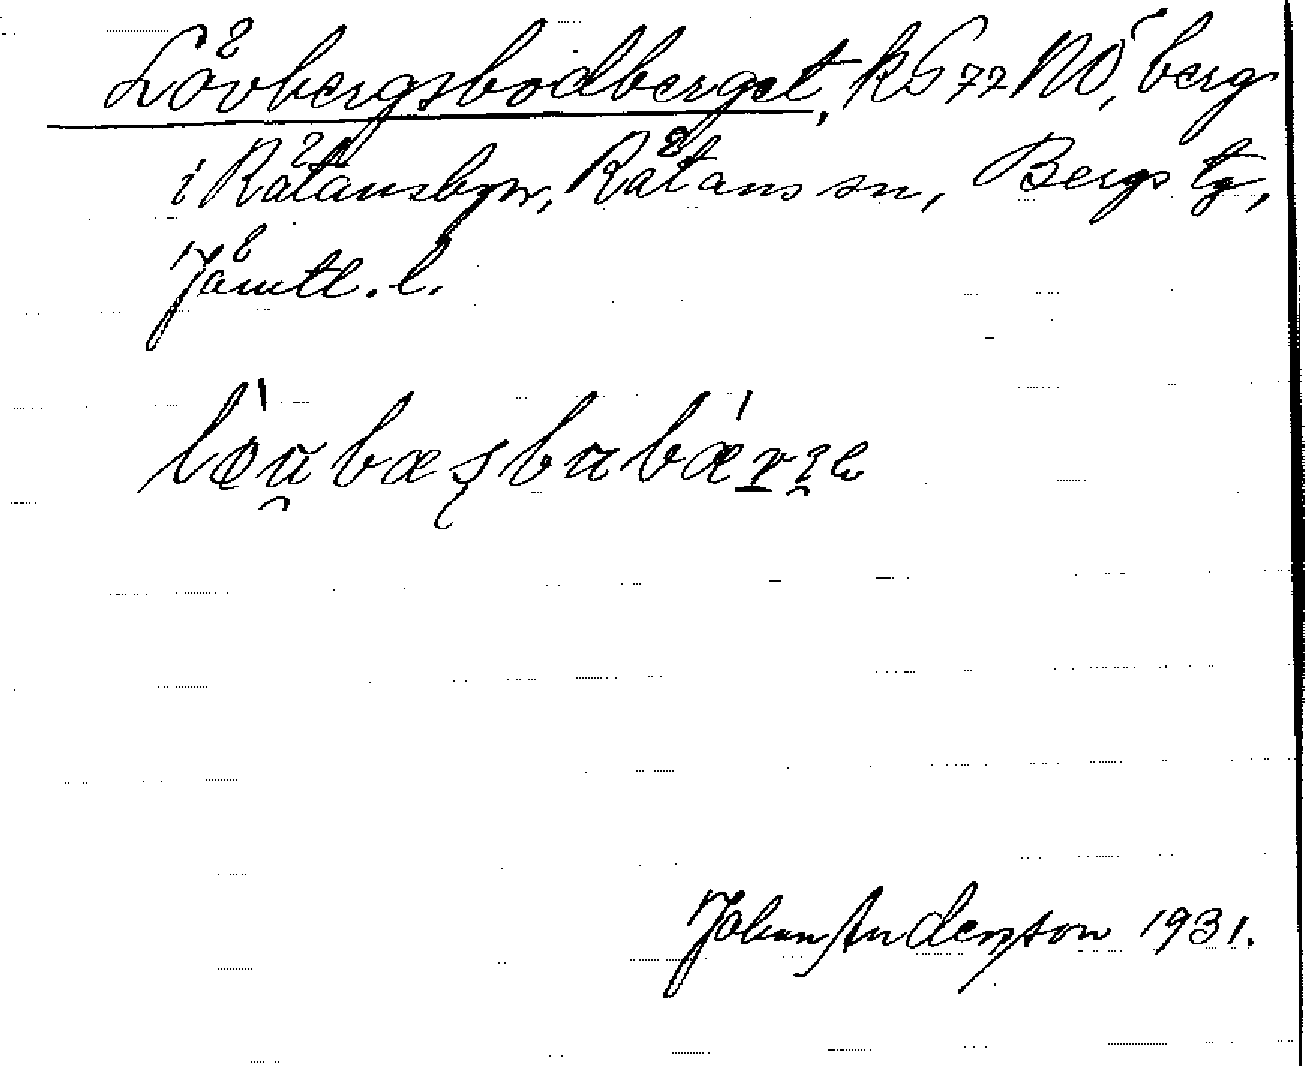 Lövbergsbodberget, kb 72 NÖ, berg
i Rätansbyn, Rätans sn, Bergs tg,
Jämtl. l.
Johan Anderson 1931.